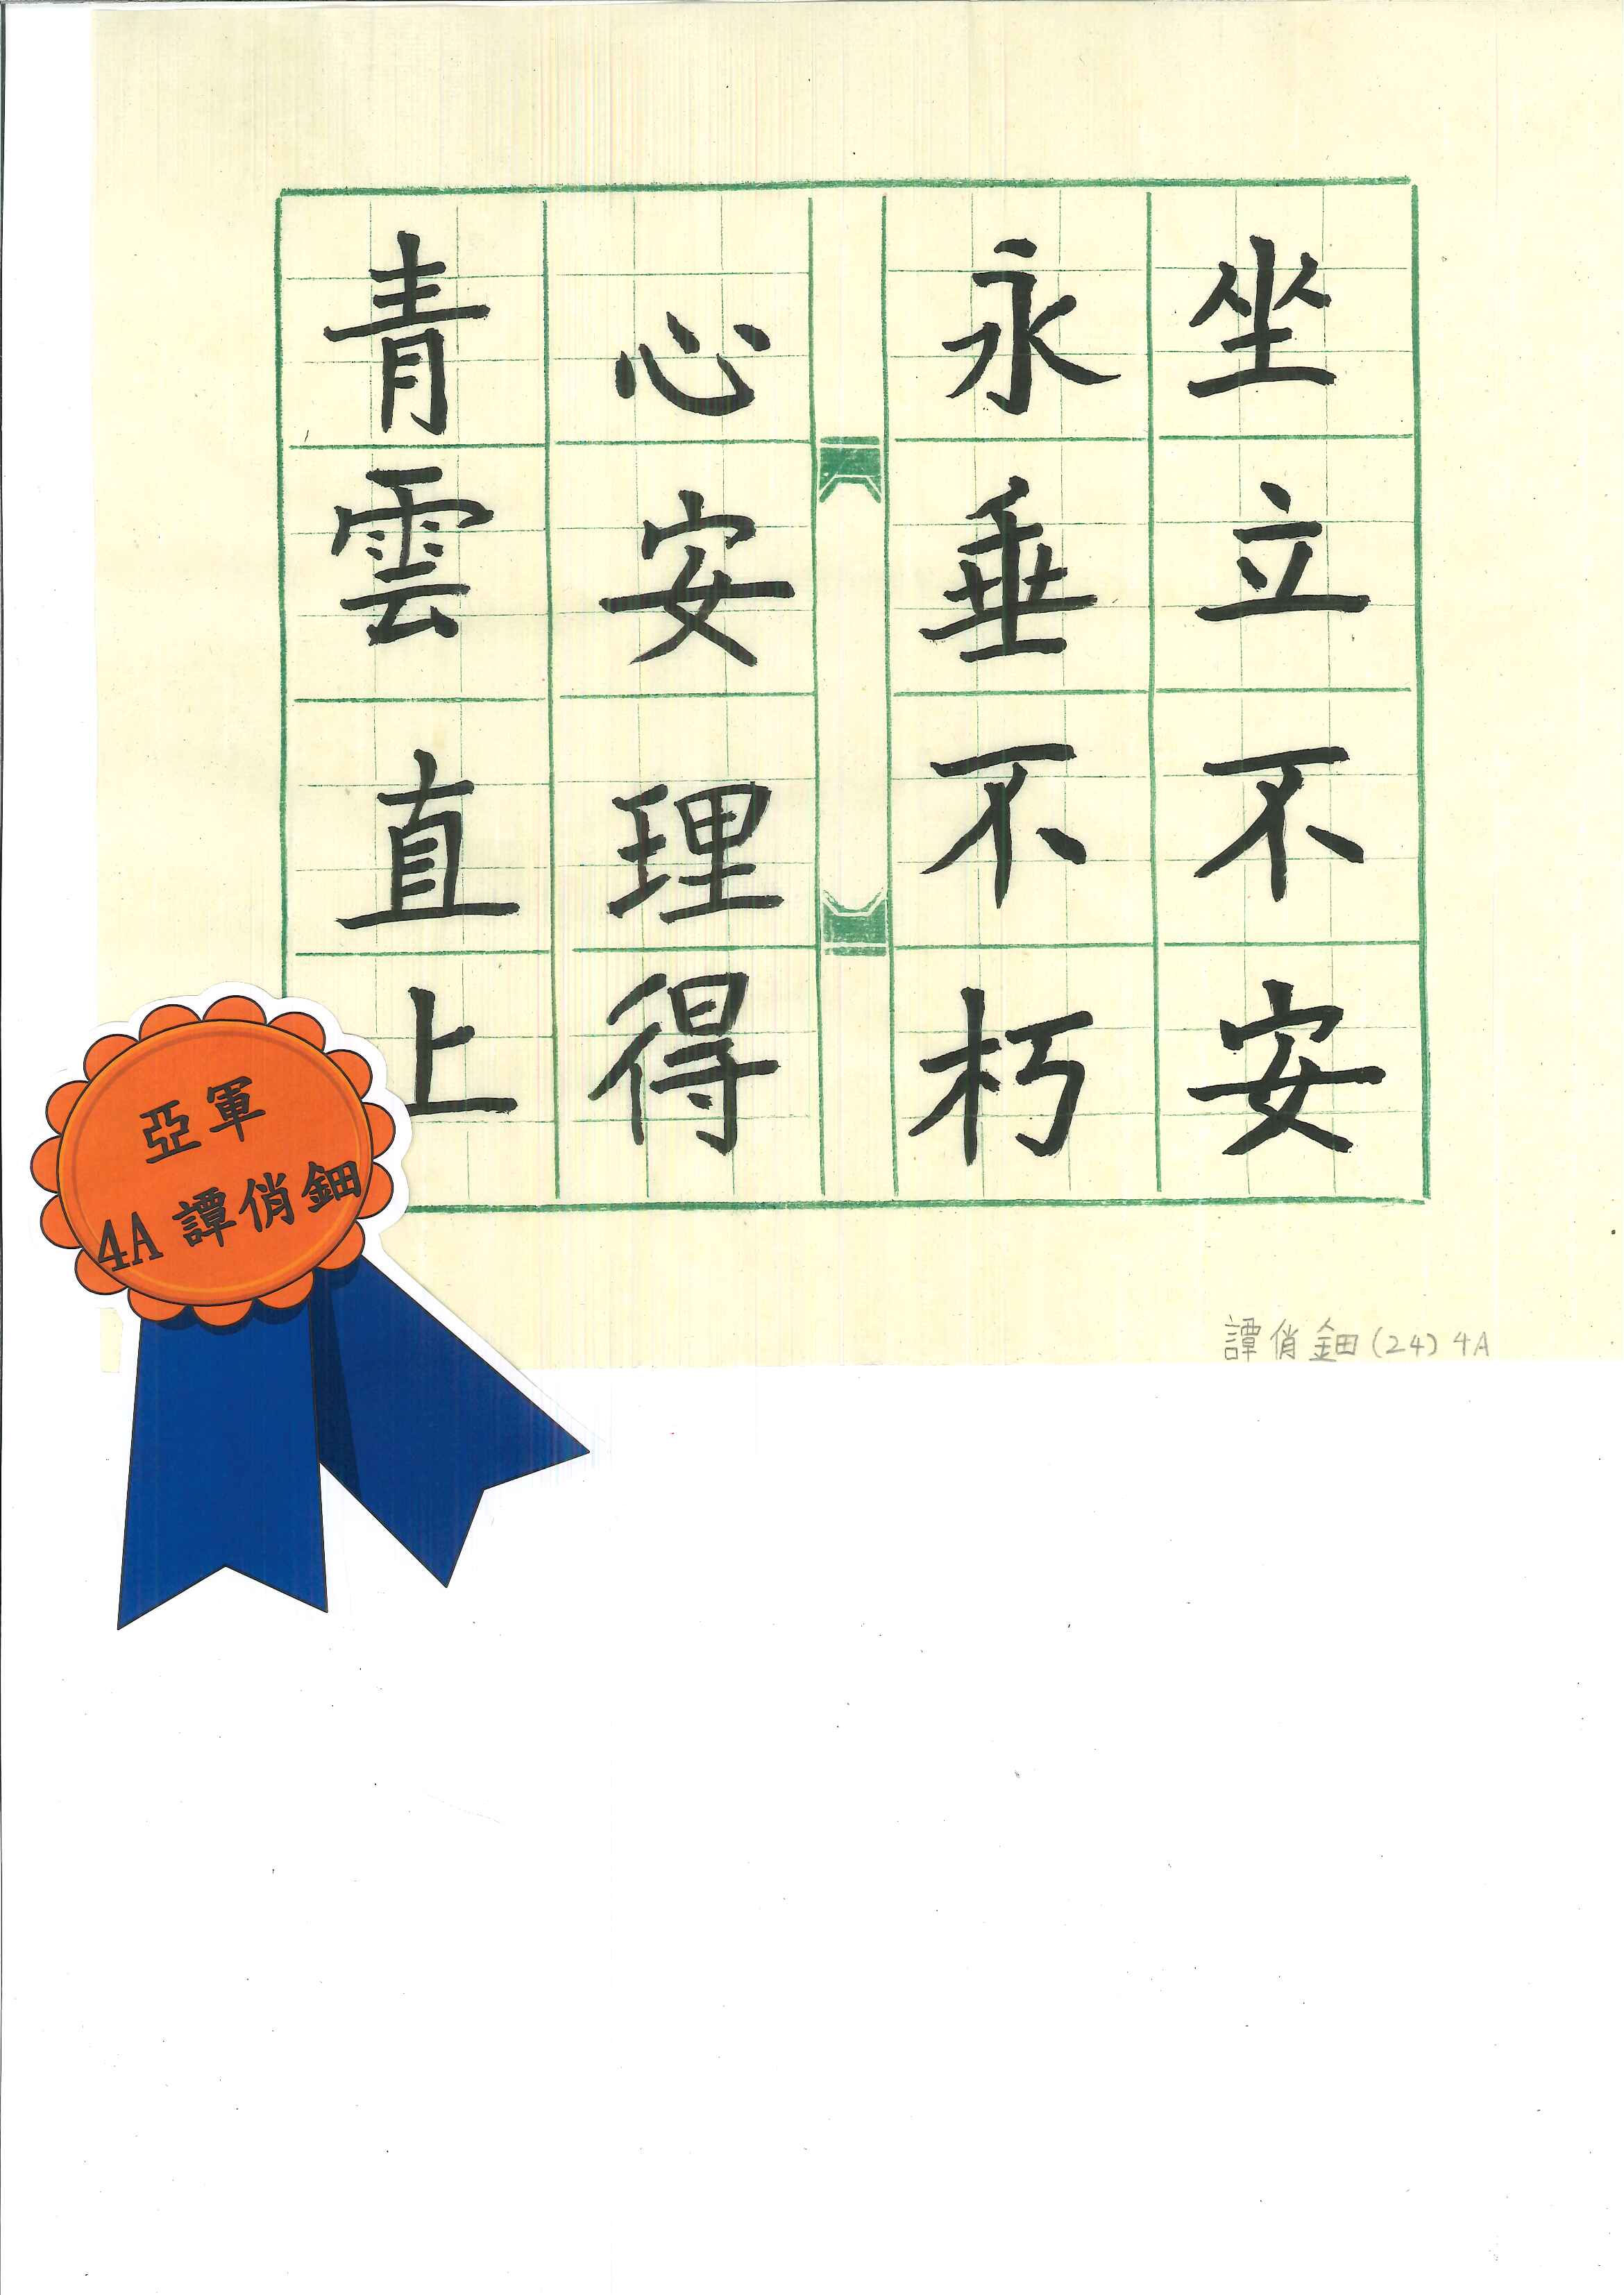 坐立不安
永垂不朽
心安理得
青雲直上
亞軍
4A 譚俏鈿
譚俏鈿(24) 4A